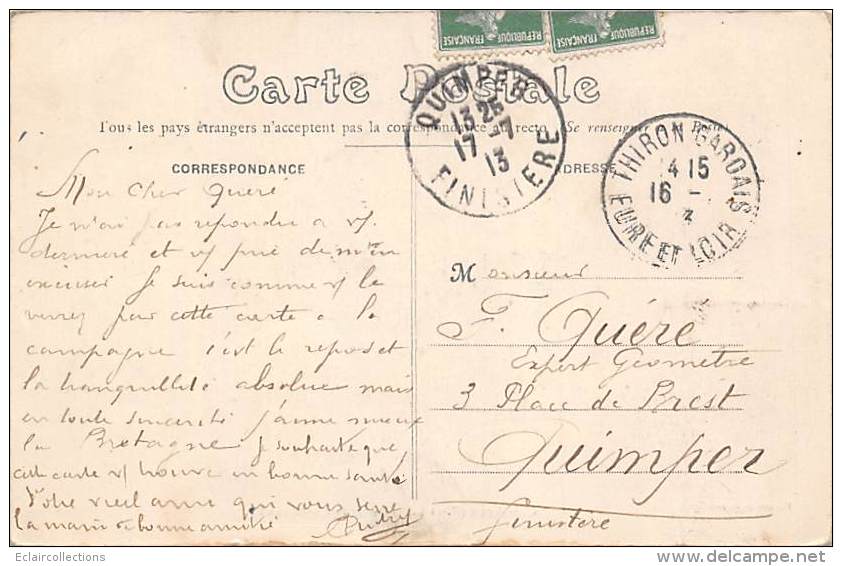 REPUBLIQUE FRANÇAISE
REPUBLIQUE FRANÇAISE
Carte Postale
Tous les pays étrangers n'acceptent pas la correspondance au recto (Se renseigner Poste
CORRESPONDANCE
ADRESSE
QUIMPER
13 25
17 - 7
13
FINISTERE
THIRON GARDAIS
14 15
16 -
EURE ET LOIR
Mon cher Quéré
Je n'ai pas repondre a v/.
dernière et v/ prie de m'en
excuser Je suis comme v/ le
verrez par cette carte a la
campagne c'est le repos et
la tranquillité absolue mais
en toute sincerité j'aime mieux
la Bretagne Je souhaite que
cette carte v/ trouve en bonne santé
Votre vieil ami qui vous serre
la main bonne amitié
Monsieur
F. Quéré
Expert Géomètre
3 Place de Brest
Quimper
Finistère
Eclaircollections
www.delcampe.net